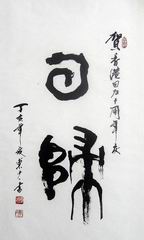 賀香港回归十周年庆
回歸
丁亥年夏